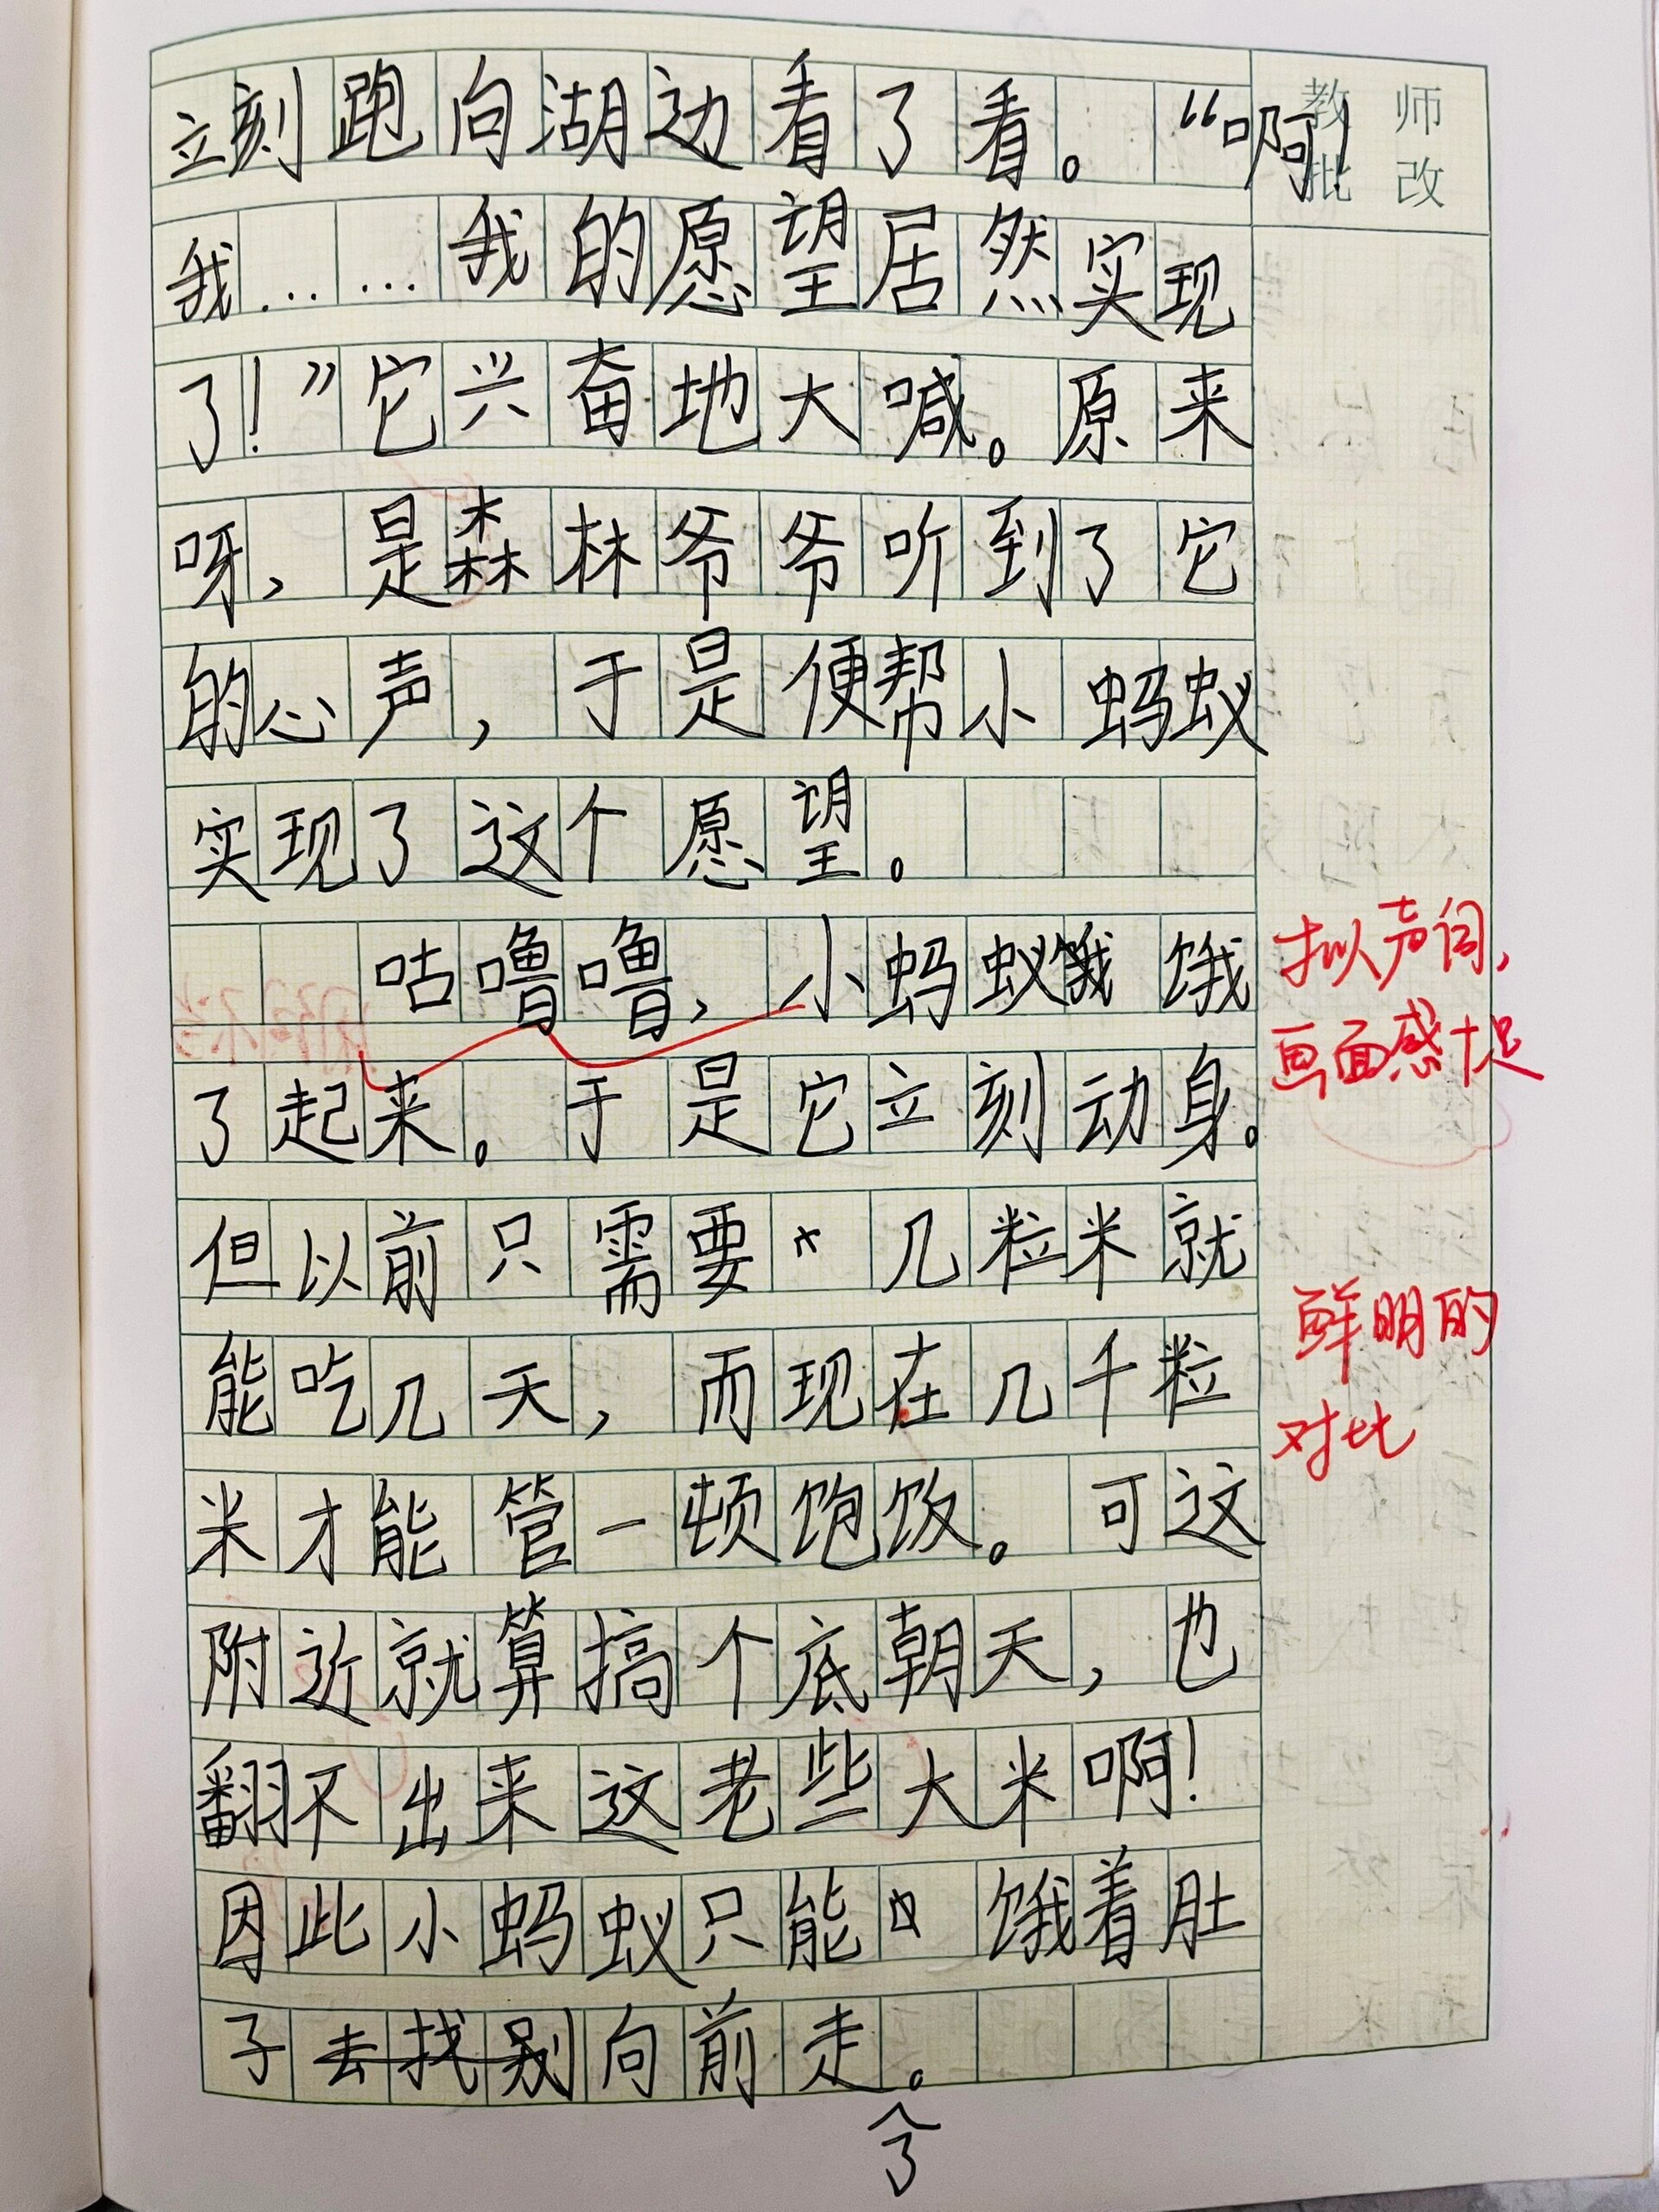 教师批改
立刻跑向湖边看了看。“啊!
我……我的愿望居然实现
了!”它兴奋地大喊。原来
呀,是森林爷爷听到了它
的心声,于是便帮小蚂蚁
实现了这个愿望。
咕噜噜,小蚂蚁饿饿
拟声词,
画面感十足
了起来。于是它立刻动身。
但以前只需要几粒米就
鲜明的
对比
能吃几天,而现在几千粒
米才能管一顿饱饭。可这
附近就算搞个底朝天,也
翻不出来这老些大米啊!
因此小蚂蚁只能饿着肚
子去找别向前走。
了